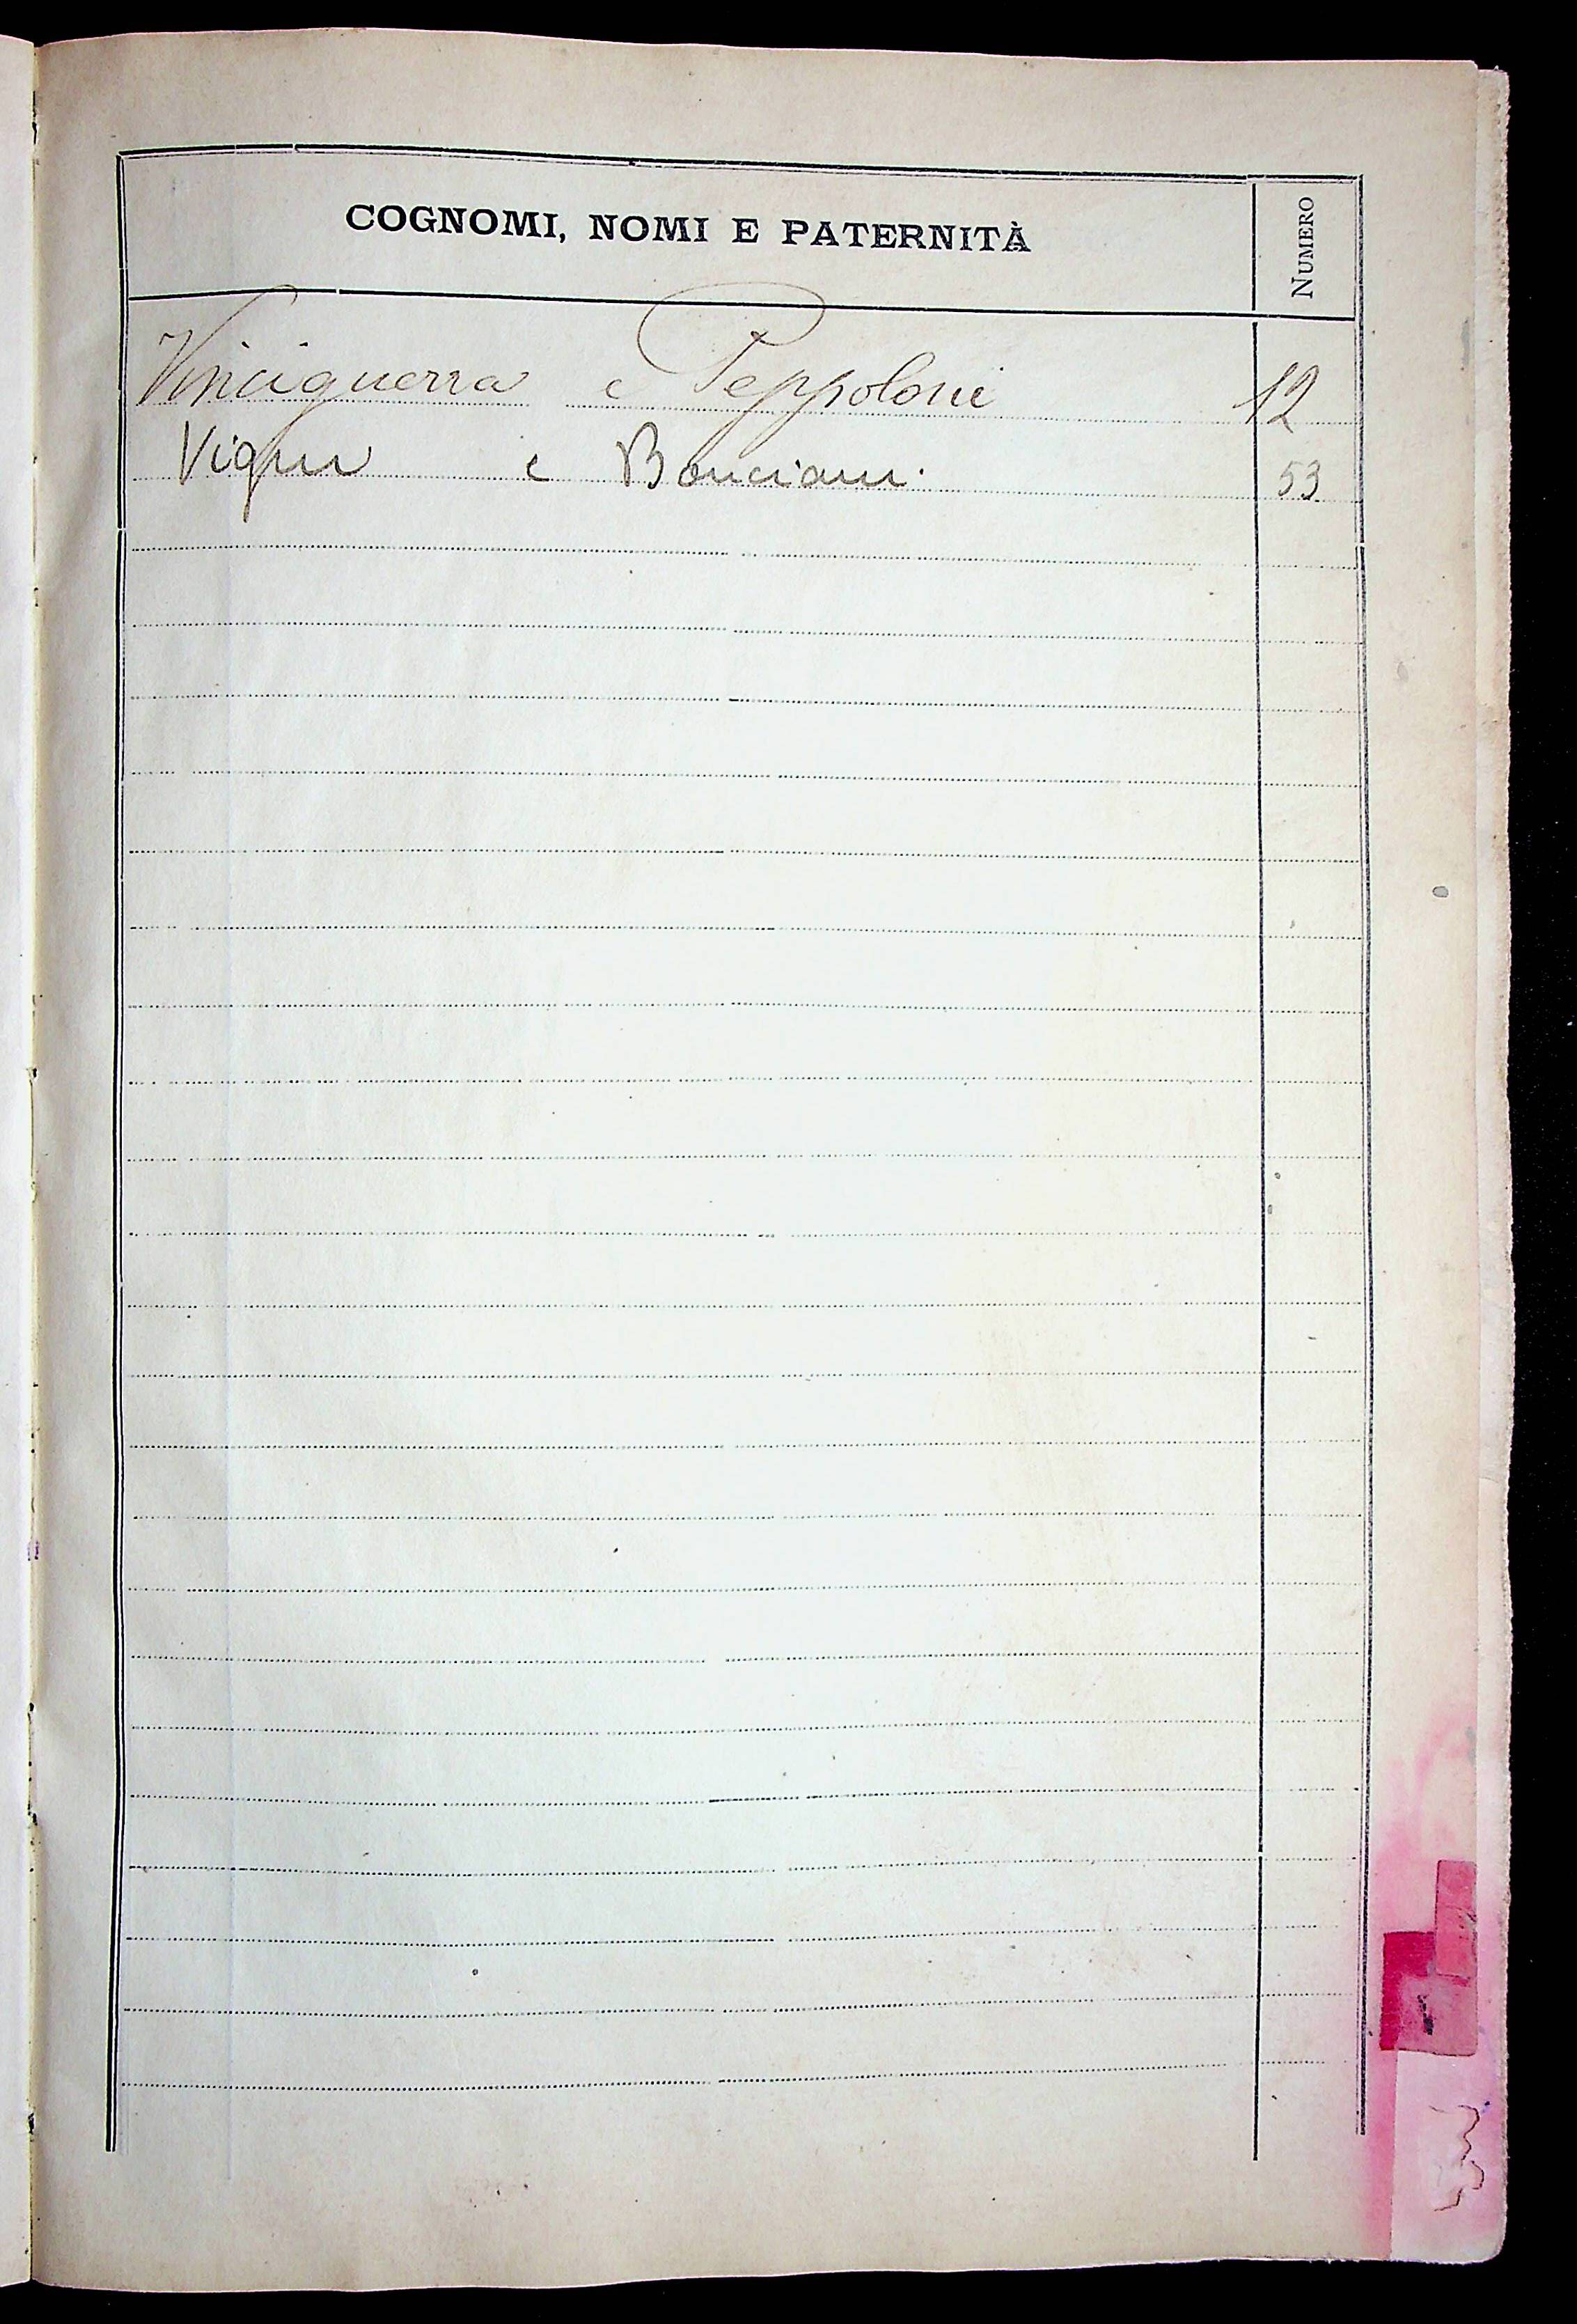 COGNOMI, NOMI E PATERNITÀ NUMERO
Vinciguerra e Peppoloni 12
e Bonciani. 53